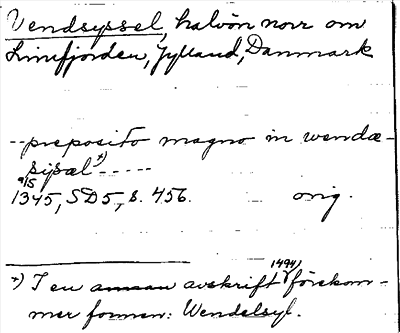 Vendsyssel, halvön norr om
Limfjorden, Jylland, Danmark
--preposito magno in wendæ-
sysæl*)-----
9/5
1345, SD5, s. 456. orig.
*) I en annan avskrift (1494) förekom-
mer formen: Wendelsyl.